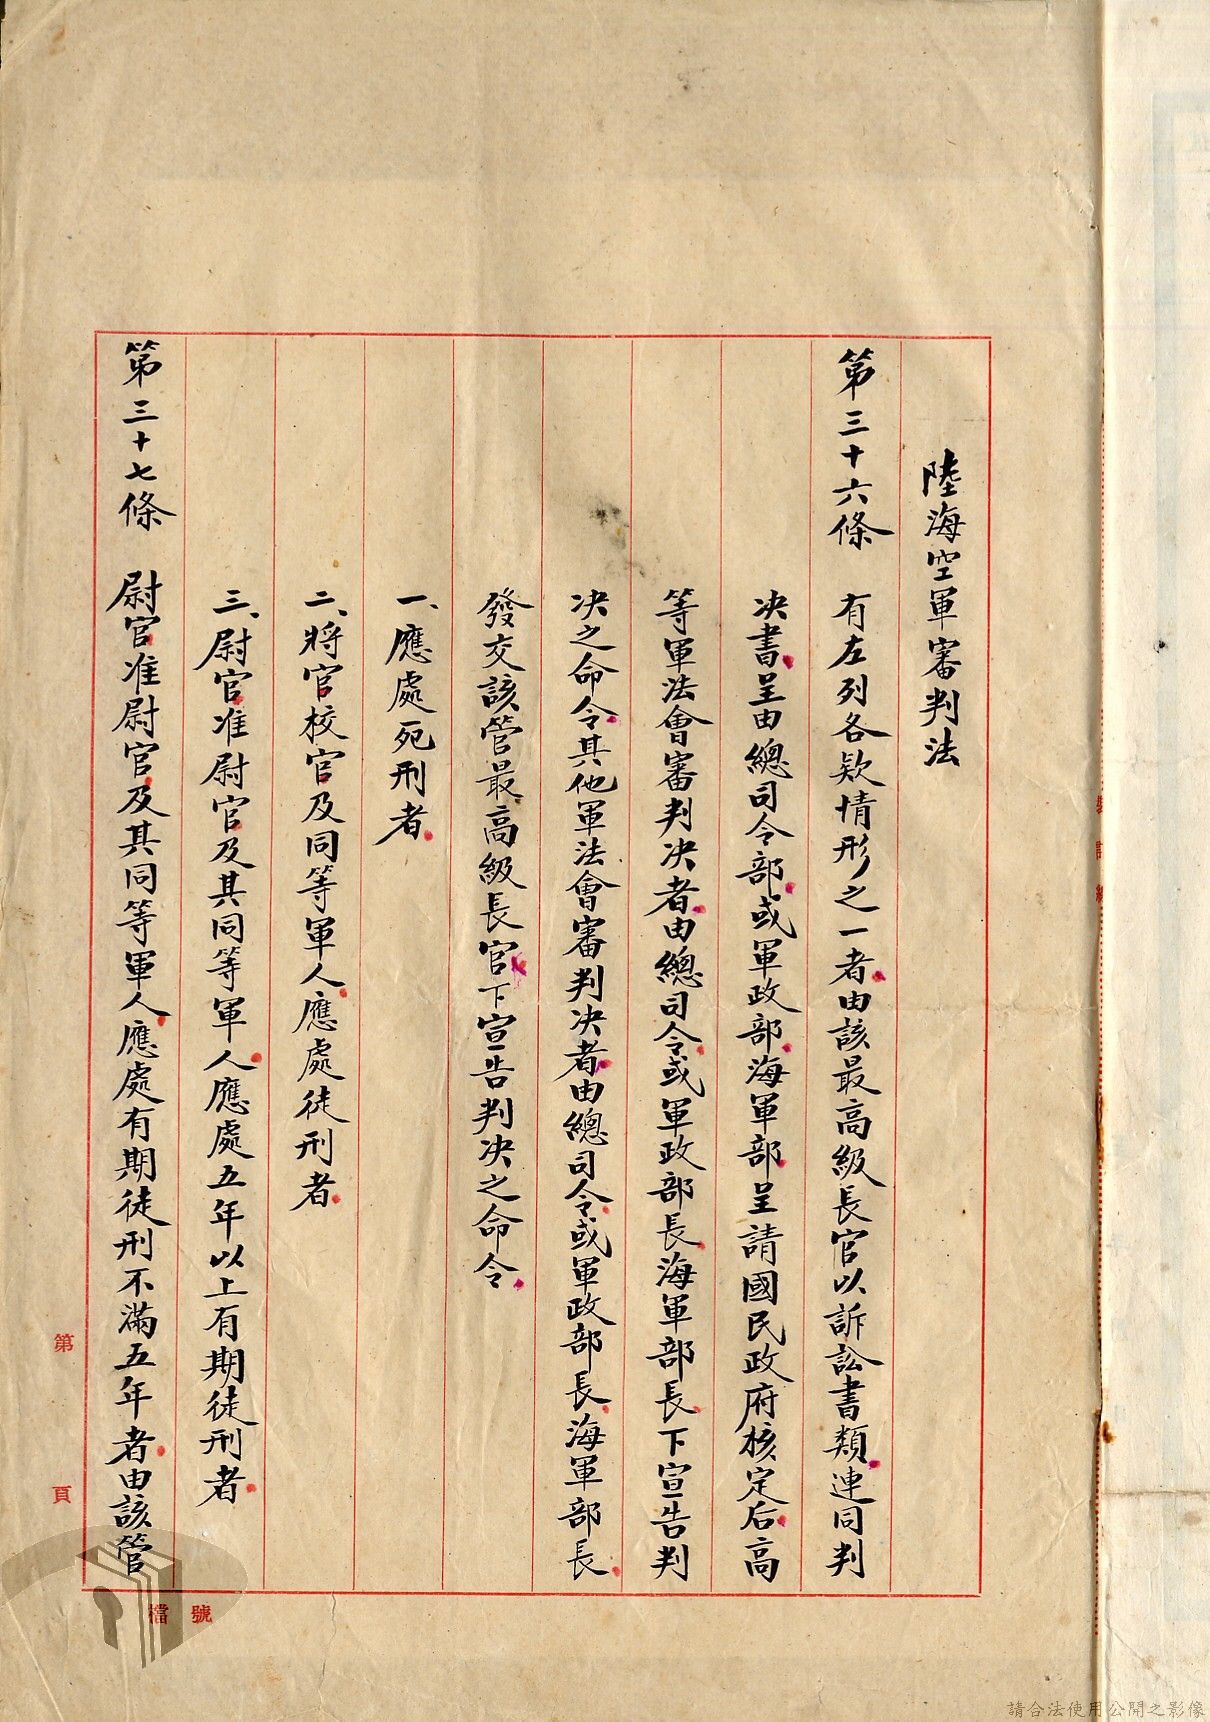 陸海空軍審判法
第三十六條 有左列各欵情形之一者由該最高級長官以訴訟書類連同判
决書呈由總司令部或軍政部海軍部呈請國民政府核定后高
等軍法會審判决者由總司令或軍政部長海軍部長下宣告判
决之命令其他軍法會審判决者由總司令或軍政部長海軍部長
發交該管最高級長官下宣告判决之命令
一、應處死刑者
二、將官校官及同等軍人應處徒刑者
三、尉官准尉官及其同等軍人應處五年以上有期徒刑者
第三十七條 尉官准尉官及其同等軍人應處有期徒刑不滿五年者由該管
第 頁
檔號
請合法使用公開之影像